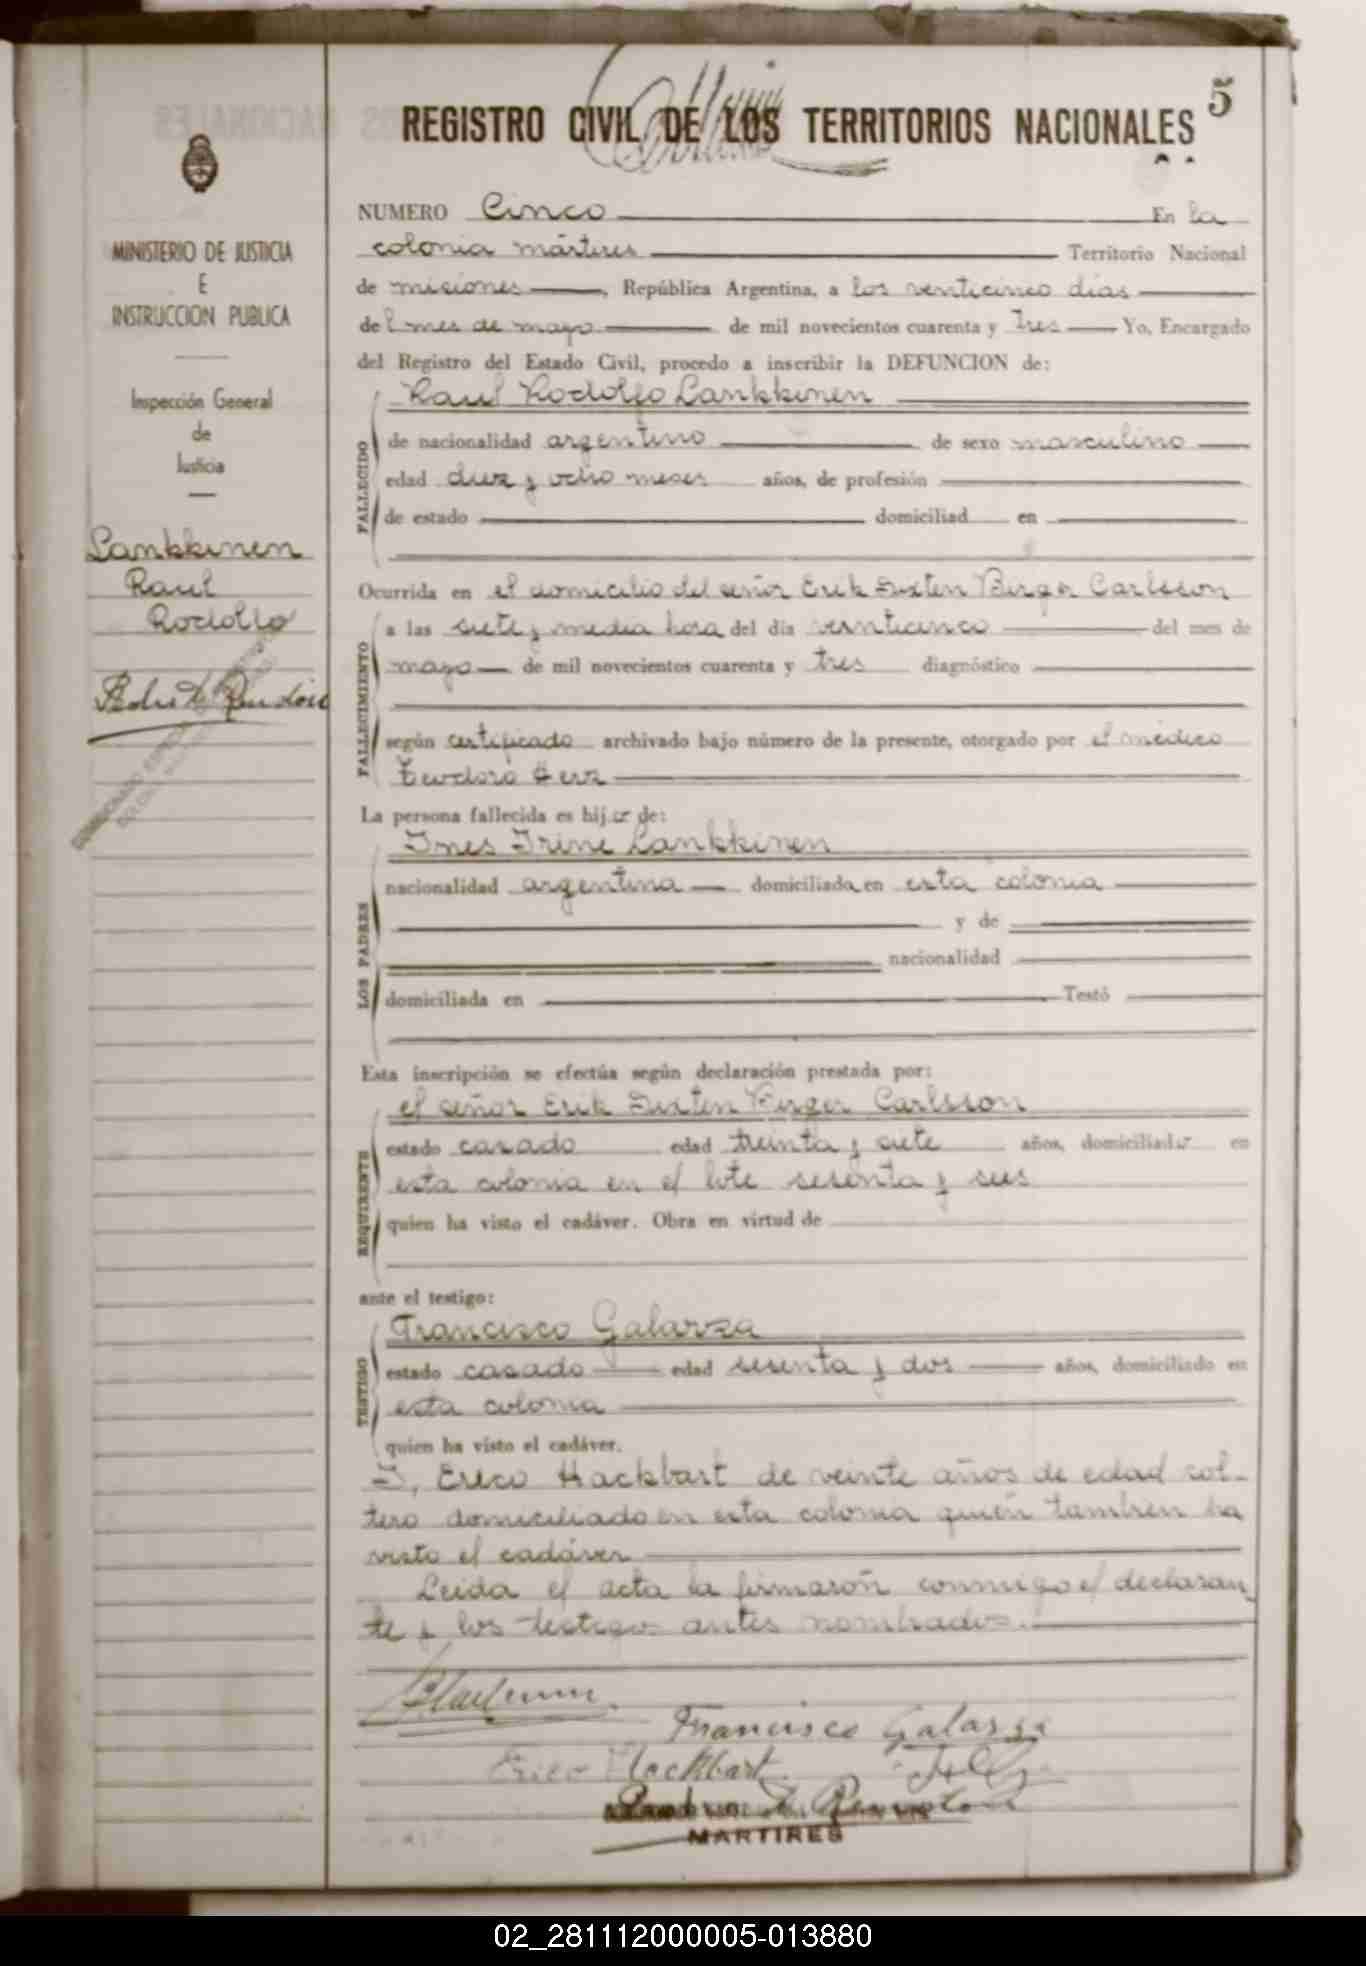 5
REGISTRO CIVIL DE LOS TERRITORIOS NACIONALES
MINISTERIO DE JUSTICIA
E
INSTRUCCION PUBLICA
Inspección General
de
Justicia
Lankkinen
Raul
Rodolfo
NUMERO Cinco En la
colonia mártires Territorio Nacional
de misiones, República Argentina, a los venticinco días
del mes de mayo de mil novecientos cuarenta y Tres Yo, Encargado
del Registro del Estado Civil, procedo a inscribir la DEFUNCION de:
Raul Rodolfo Lankkinen
FALLECIDO
de nacionalidad argentino de sexo masculino
edad diez y ocho meses años, de profesión
de estado domiciliad en
Ocurrida en el domicilio del señor Erik Sixten Birger Carlsson
FALLECIMIENTO
a las siete y media hora del día venticinco del mes de
mayo de mil novecientos cuarenta y tres diagnóstico
según certificado archivado bajo número de la presente, otorgado por el médico
Teodoro
La persona fallecida es hijo de:
Ines Irine Lankkinen
LOS PADRES
nacionalidad argentina domiciliada en esta colonia
y de
nacionalidad
domiciliada en Testó
Esta inscripción se efectúa según declaración prestada por:
el señor Erik Sixten Birger Carlsson
REQUIRENTE
estado casado edad treinta y siete años, domiciliado en
esta colonia en el lote sesenta y seis
quien ha visto el cadáver. Obra en virtud de
ante el testigo:
Francisco Galarza
TESTIGO
estado casado edad sesenta y dos años, domiciliado en
esta colonia
quien ha visto el cadáver.
I, Erico Hackbart de veinte años de edad sol-
tero domiciliado en esta colonia quien tambien ha
visto el cadáver
Leida el acta la firmaron conmigo el declaran
te y los testigos antes nombrados.
Francisco Galarza
Erico Hackbart
MARTIRES
02_281112000005-013880